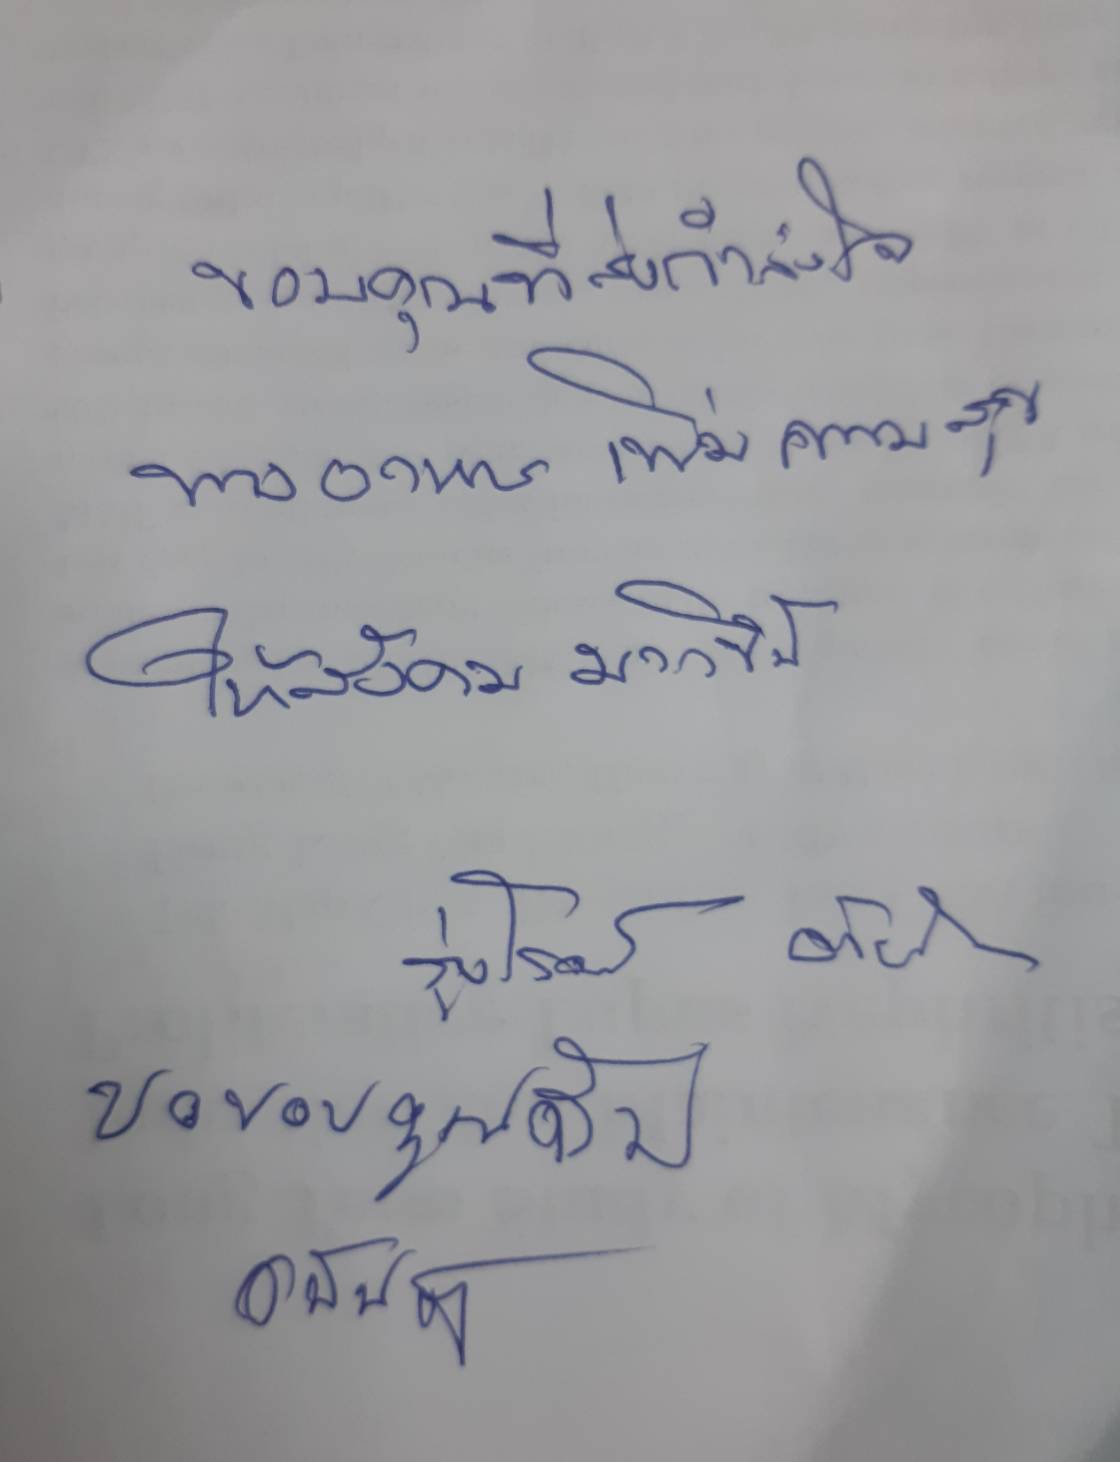 ขอบคุณที่ส่งกำลังใจ
ทางอาหาร เพิ่มความสุข
ให้สังคม มากขึ้น
รุ่งโรจน์
ขอขอบคุณครับ